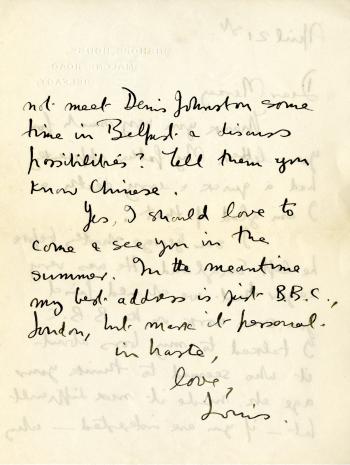 not meet Denis Johnston some
time in Belfast & discuss
possibilities? Tell them you
know Chinese.
Yes, I should love to
come & see you in the
summer. In the meantime
my best address is just B.B.C.,
London, but mark it personal.
in haste,
love,
Louis.